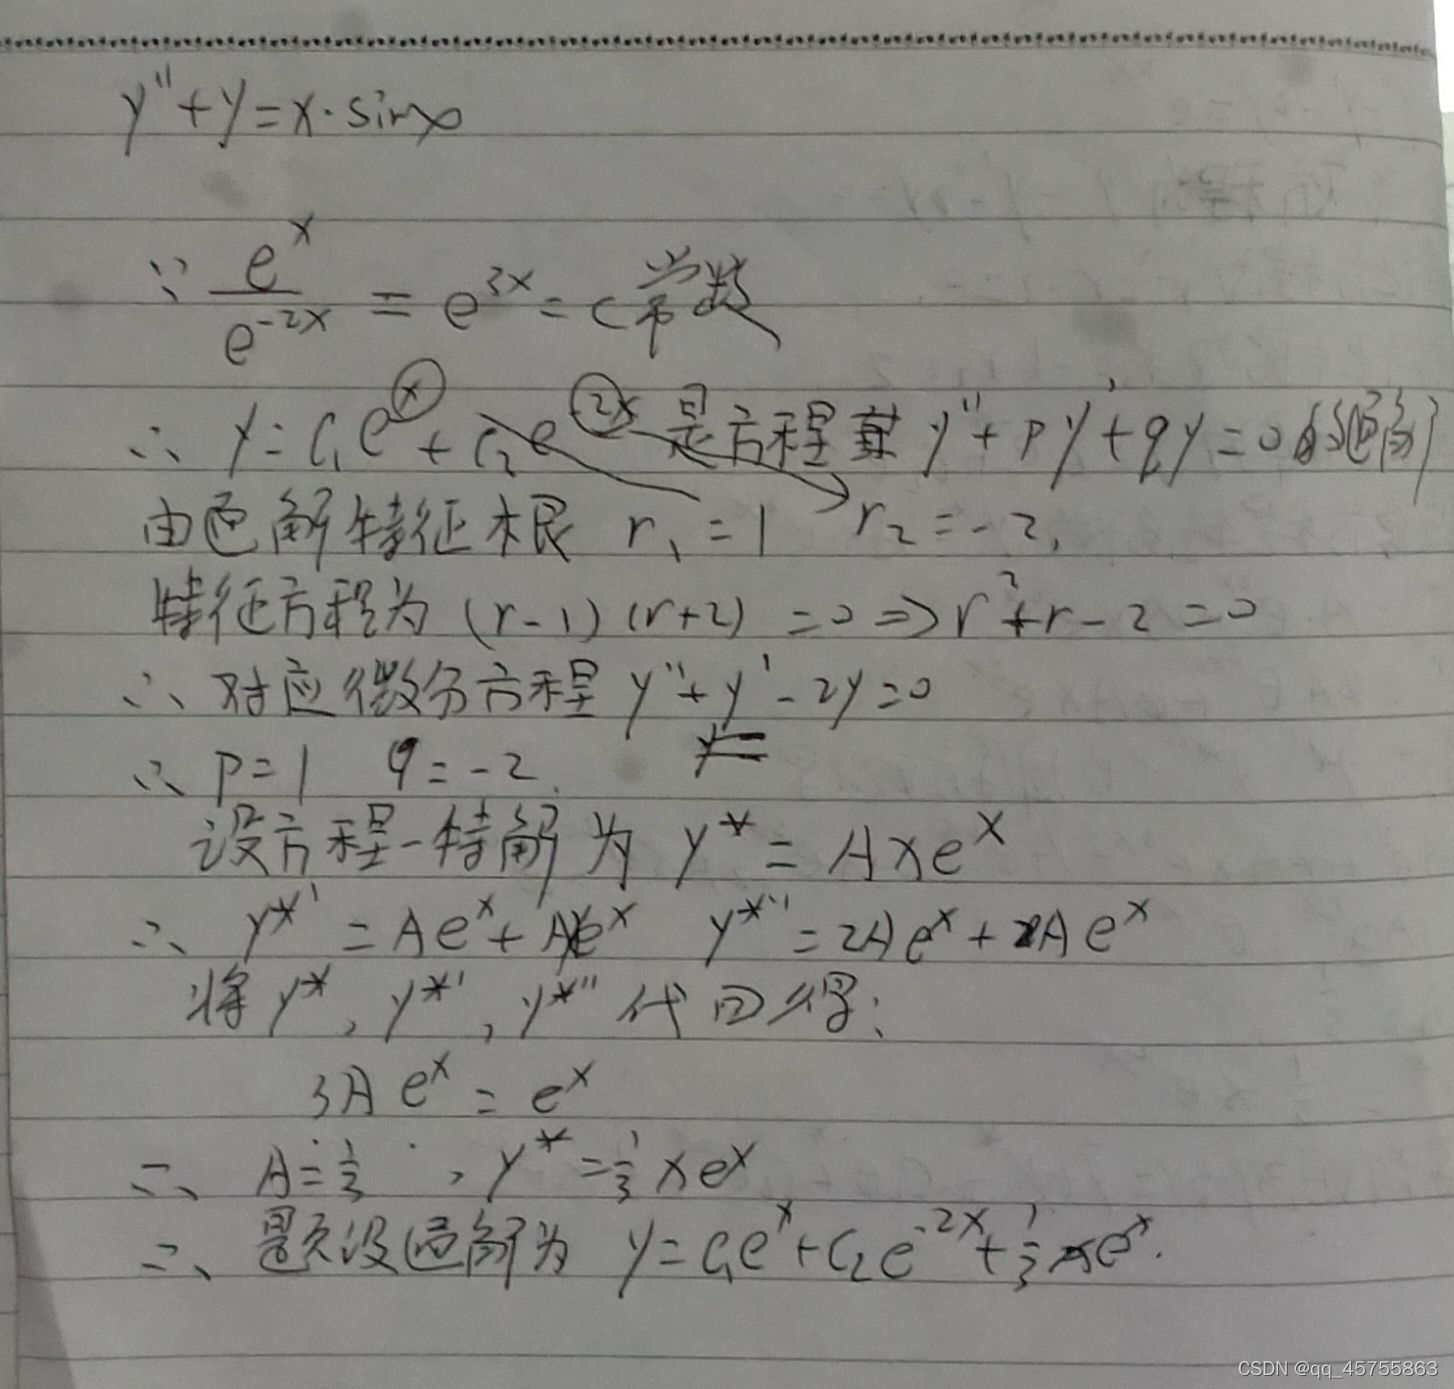 y''+y=x·sinx
∵ e^x/e^{-2x} = e^{3x} = c常数
∴ y=C₁e^x+C₂e^{-2x} 是方程 y''+py'+qy=0的通解
由通解特征根 r₁=1 r₂=-2,
特征方程为 (r-1)(r+2)=0⇒r²+r-2=0
∴ 对应微分方程 y''+y'-2y=0
∴ p=1 q=-2.
设方程一特解为 y*=Axe^x
∴ y*'=Ae^x+Axe^x y*''=2Ae^x+xAe^x
将y*, y*', y*''代回得:
3Ae^x=e^x
∴ A=1/3, y*=1/3xe^x
∴ 题设通解为 y=C₁e^x+C₂e^{-2x}+1/3xe^x.
CSDN @qq_45755863